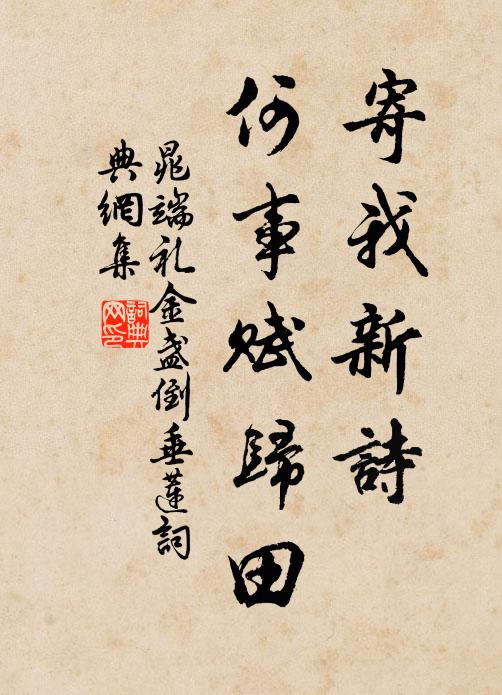 寄我新詩
何事賦歸田
晁端礼金盞倒垂蓮詞
典網集
詞典网印